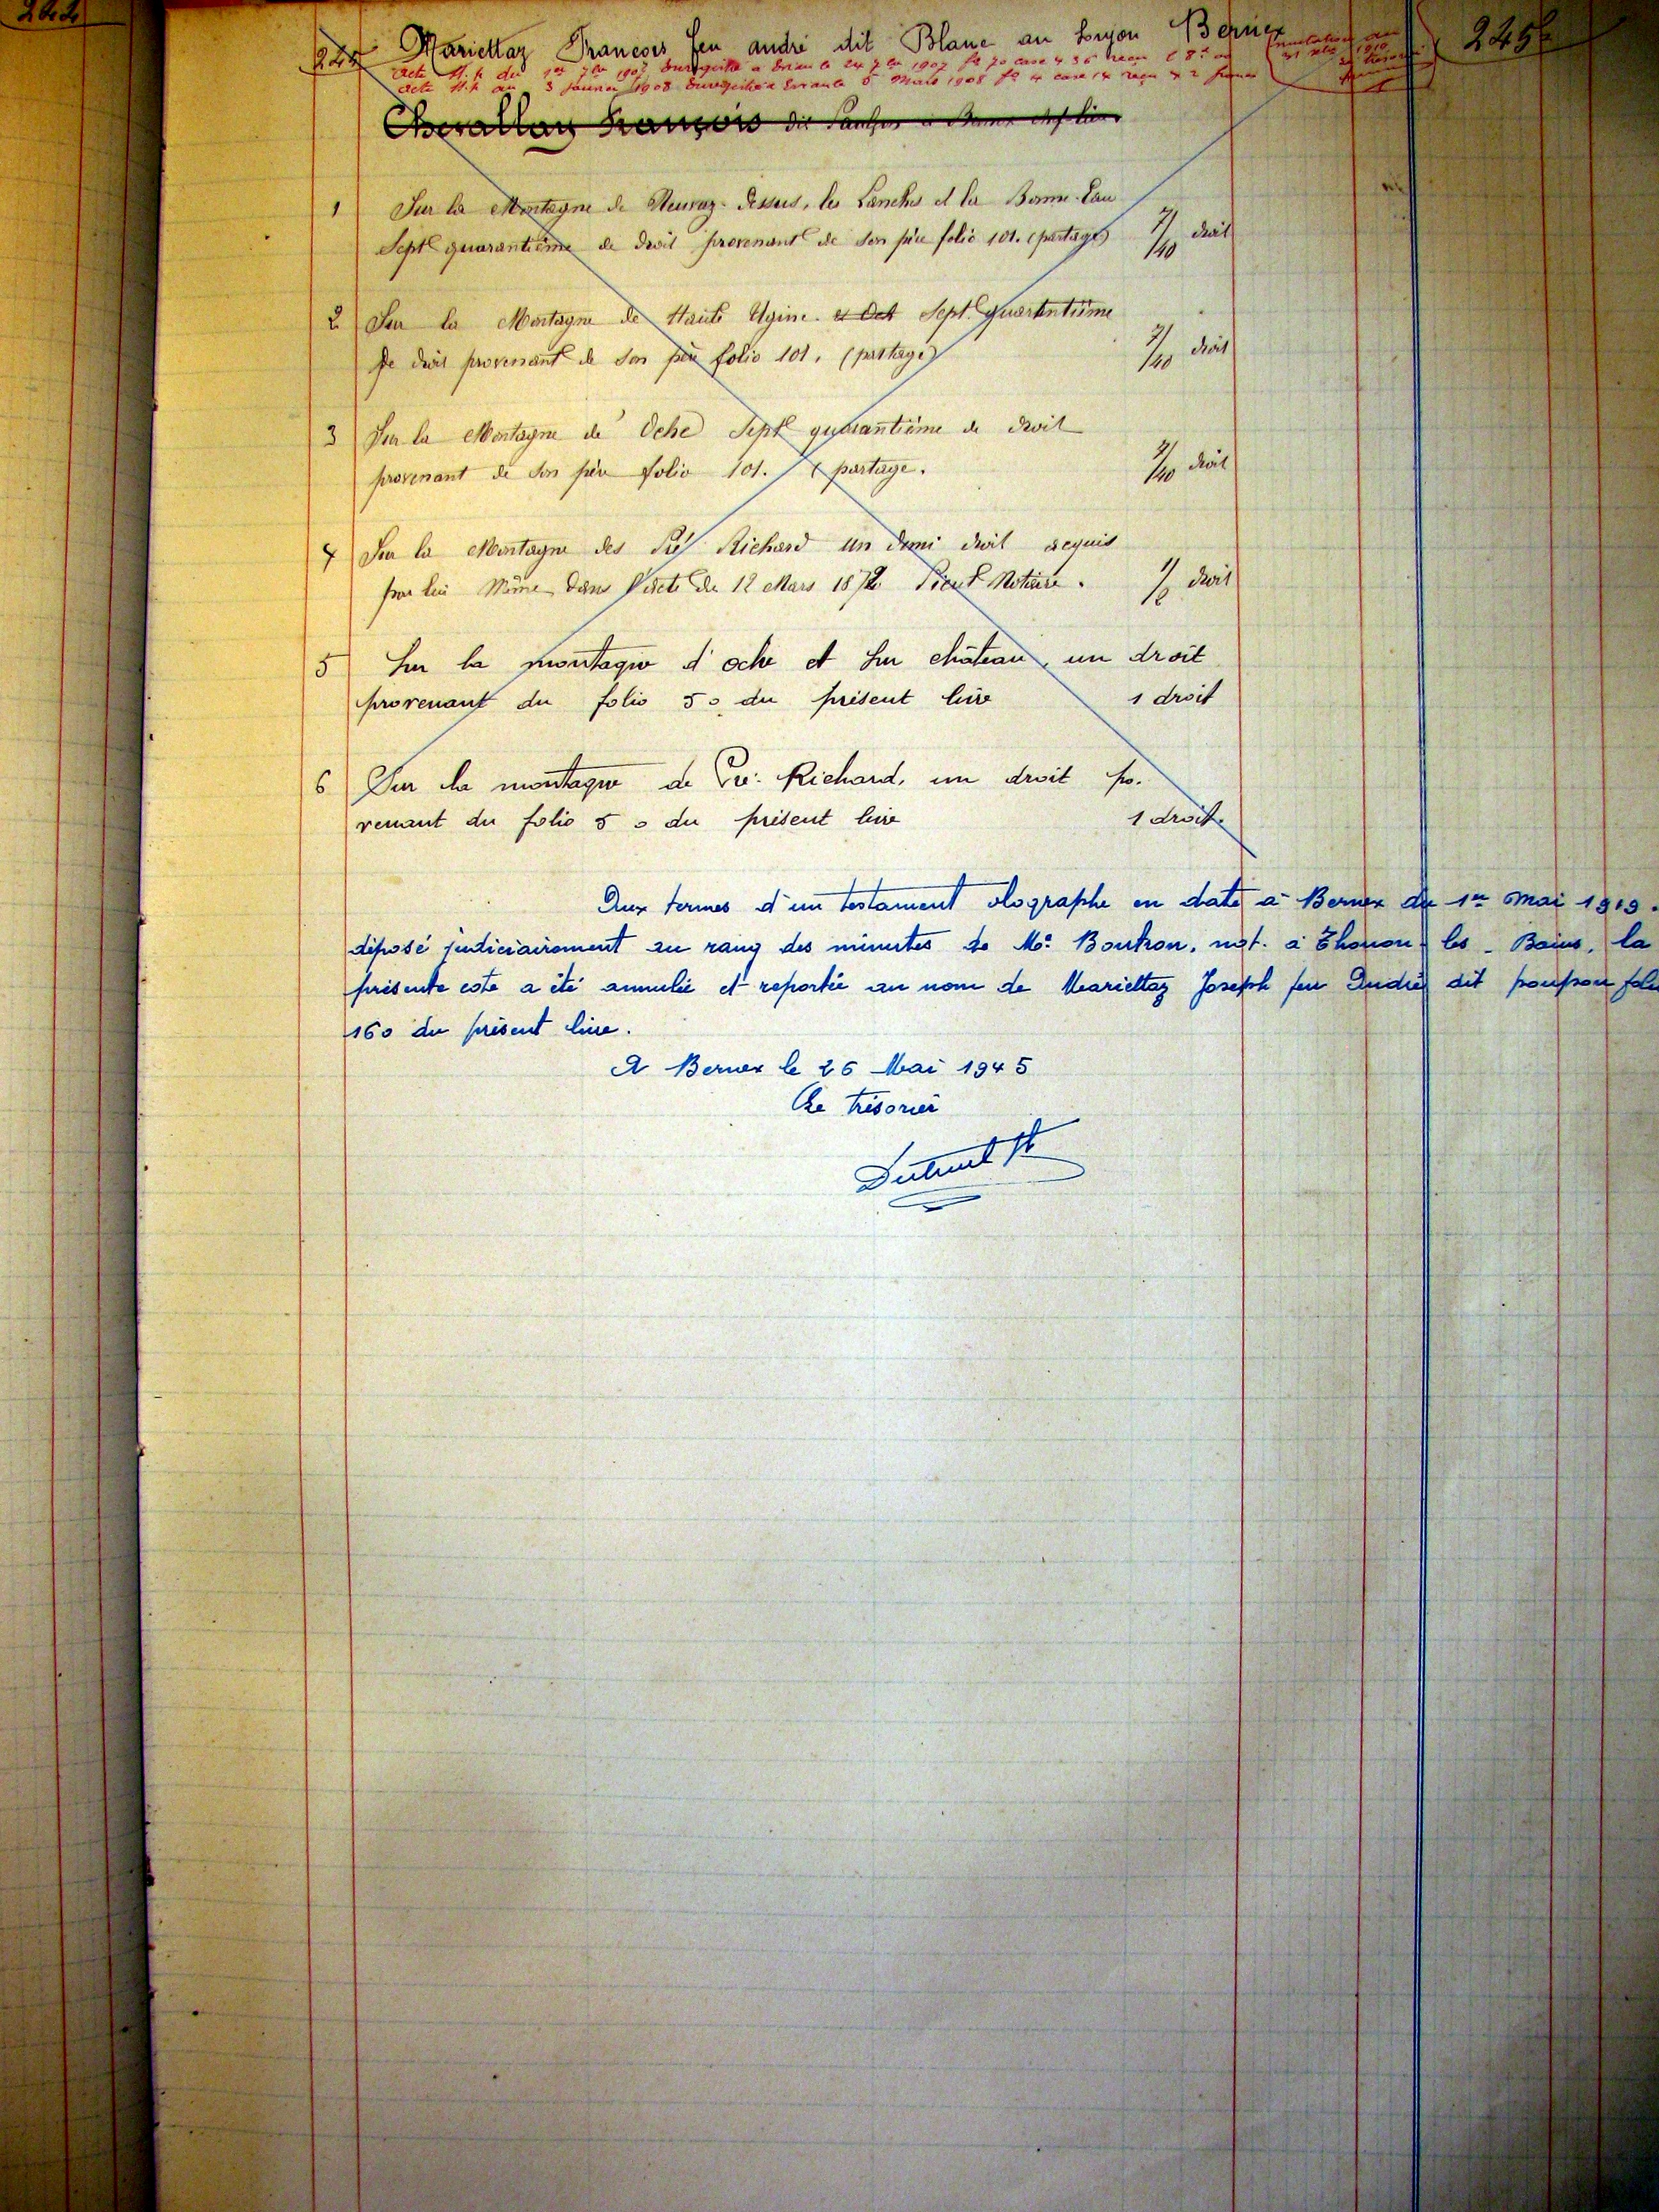 244
245
245
Mariettaz Francois feu andré dit Blanc au Bernex
Acte du 1er 7bre 1907 Enregistré a Evian le 24 7bre 1907 fo 70 case 436 reçu
Acte du 3 Janvier 1908 Enregistré a Evian le 5 Mars 1908 fo 4 case 14 reçu 2 francs
mutation du
1910
le trésorier
Chevallay François dit a Bernex chef lieu
1 Sur la Montagne de Neuvaz-Dessus, les Lanches et la Bonne-Eau
Sept quarantième de droit provenant de son père folio 101. (partage) 7/40 droit
2 Sur la Montagne de Haute Ugine. et Och Sept quarantième
de droit provenant de son père folio 101. (partage) 7/40 droit
3 Sur la Montagne de Oche Sept quarantième de droit
provenant de son père folio 101. (partage. 7/40 droit
4 Sur la Montagne des Pré Richard un demi droit acquis
par lui Même dans l'acte du 12 Mars 1872 Notaire. 1/2 droit
5 Sur la montagne d'oche et sur château, un droit
provenant du folio 50 du présent livre 1 droit
6 Sur la montagne de Pré-Richard, un droit pro-
venant du folio 50 du présent livre 1 droit.
Aux termes d'un testament olographe en date à Bernex du 1er Mai 1919.
déposé judiciairement au rang des minutes de Me Boutron, not. à Thonon-les-Bains, la
présente cote a été annulée et reportée au nom de Mariettaz Joseph feu André dit poupou folio
160 du présent livre.
A Bernex le 26 Mai 1945
Le trésorier